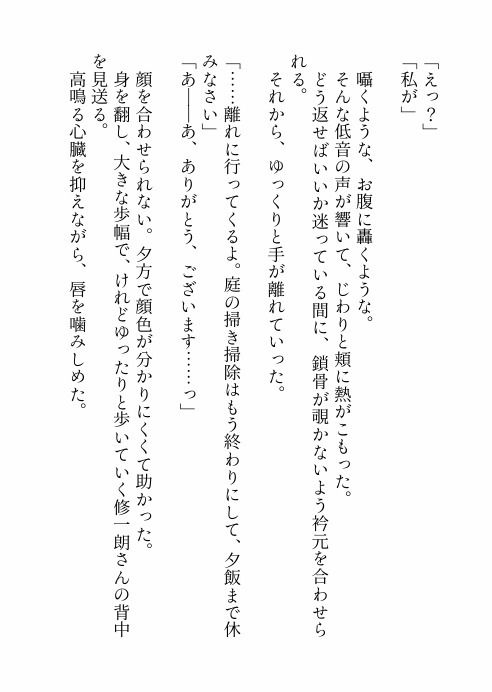 「えっ？」
「私が」
囁くような、お腹に轟くような。
そんな低音の声が響いて、じわりと頬に熱がこもった。
どう返せばいいか迷っている間に、鎖骨が覗かないよう衿元を合わせら
れる。
それから、ゆっくりと手が離れていった。
「……離れに行ってくるよ。庭の掃き掃除はもう終わりにして、夕飯まで休
みなさい」
「あ――あ、ありがとう、ございます……っ」
顔を合わせられない。夕方で顔色が分かりにくくて助かった。
身を翻し、大きな歩幅で、けれどゆったりと歩いていく修一朗さんの背中
を見送る。
高鳴る心臓を抑えながら、唇を噛みしめた。